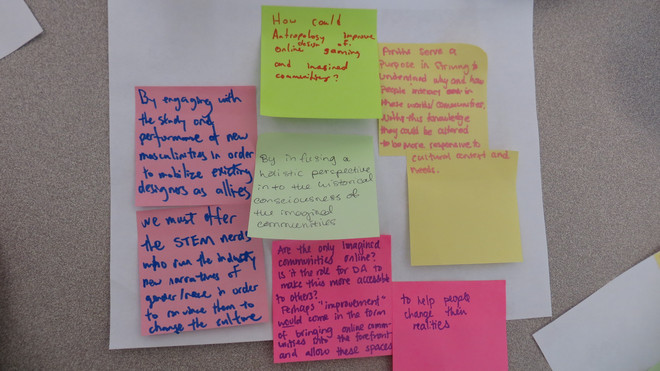 How could
Antropology improve
design of
online gaming
and imagined
communities?
Perhaps serve a
purpose in striving to
understand why and how
people interact and in
these worlds/communities.
this knowledge
they could be
to be more responsive to
cultural context and
needs.
By engaging with
the study and
performance of new
masculinities in order
to mobilize existing
designers as allies
By infusing a
holistic perspective
in to the historical
consciousness of
the imagined
communities
we must offer
the STEM nerds
who run the industry
new narratives of
gender/race in order
to move them to
change the culture
Are the only imagined
communities online?
Is it the role for DA to
make this more accessible
to others?
Perhaps "improvement"
would come in the form
of bringing online comm-
unities into the forefront
and allow these spaces
to help people
change their
realities